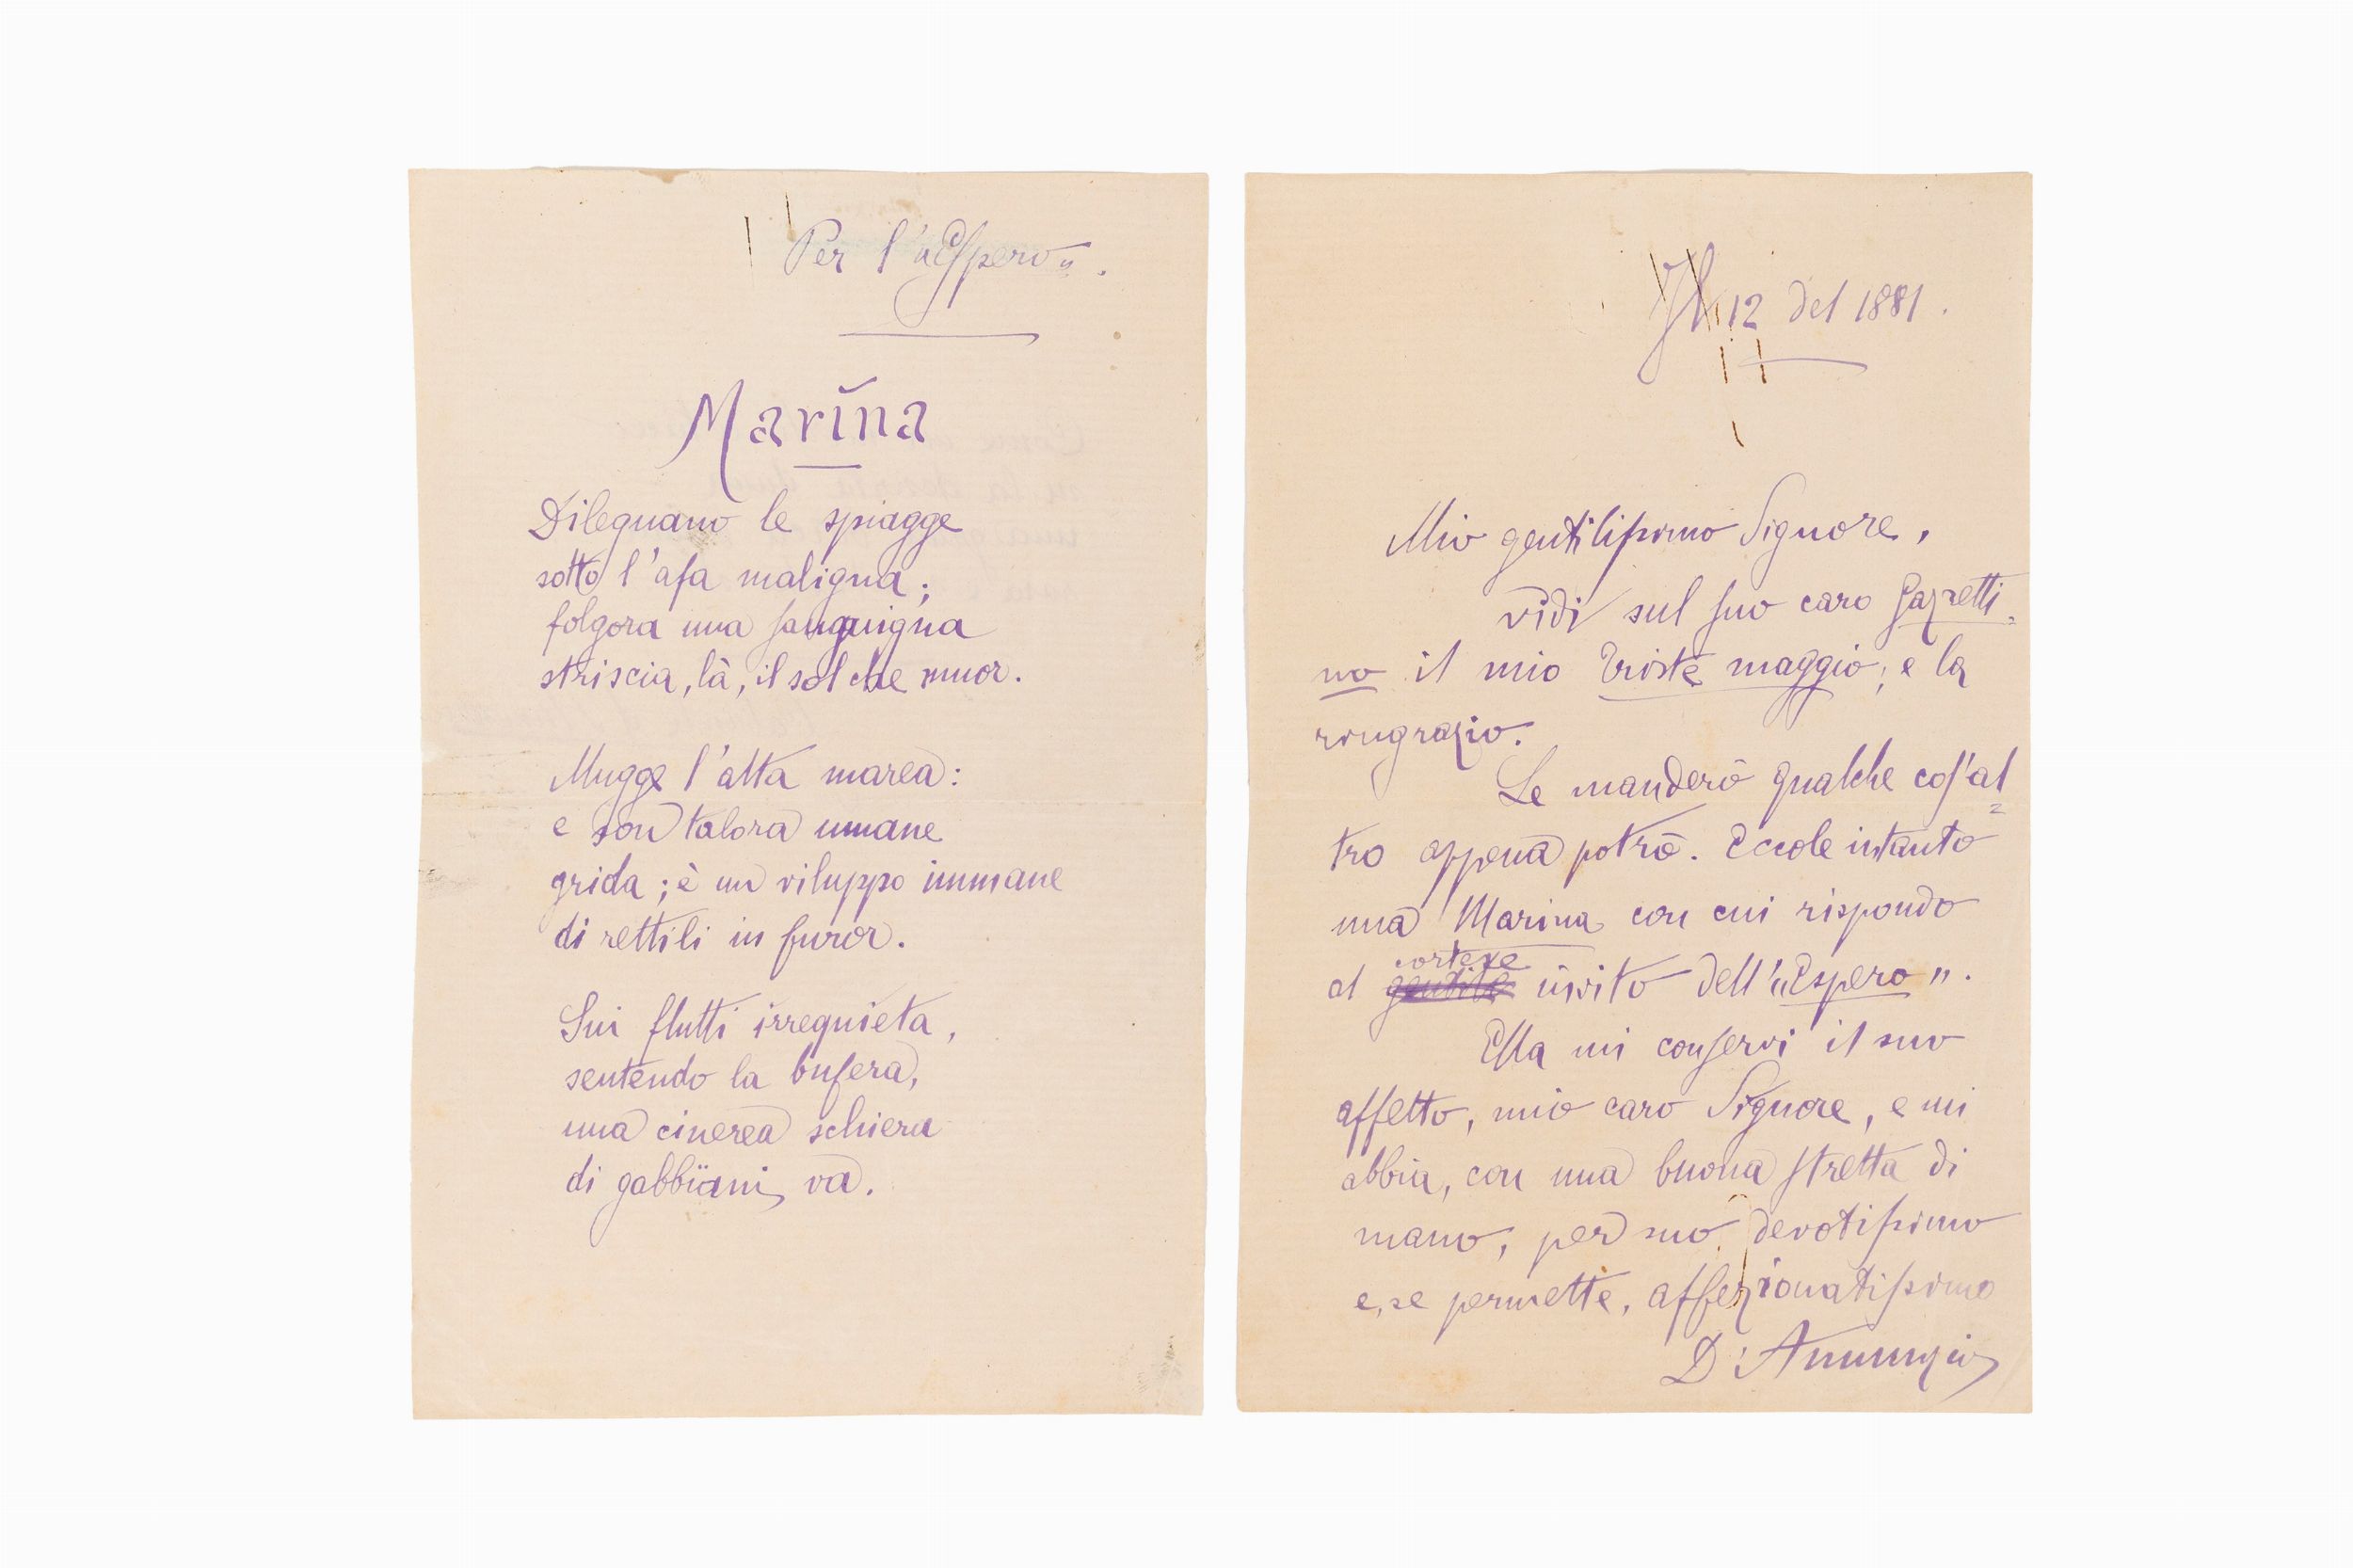 Per l'„Espero".
Marina
Dileguano le spiagge
sotto l'afa maligna;
folgora una sanguigna
striscia, là, il sol che muor.
Mugge l'alta marea:
e son talora umane
grida; è un viluppo immane
di rettili in furor.
Sui flutti irrequieta,
sentendo la bufera,
una cinerea schiera
di gabbïani va.
Il 12 del 1881.
Mio gentilissimo Signore,
vidi sul suo caro Gazzetti=
no il mio Triste maggio; e la
ringrazio.
Le manderò qualche cos'al=
tro appena potrò. Eccole intanto
una Marina con cui rispondo
cortese
al gentile invito dell'„Espero".
Ella mi conservi il suo
affetto, mio caro Signore, e mi
abbia, con una buona stretta di
mano, per suo devotissimo
e, se permette, affezionatissimo
D'Annunzio